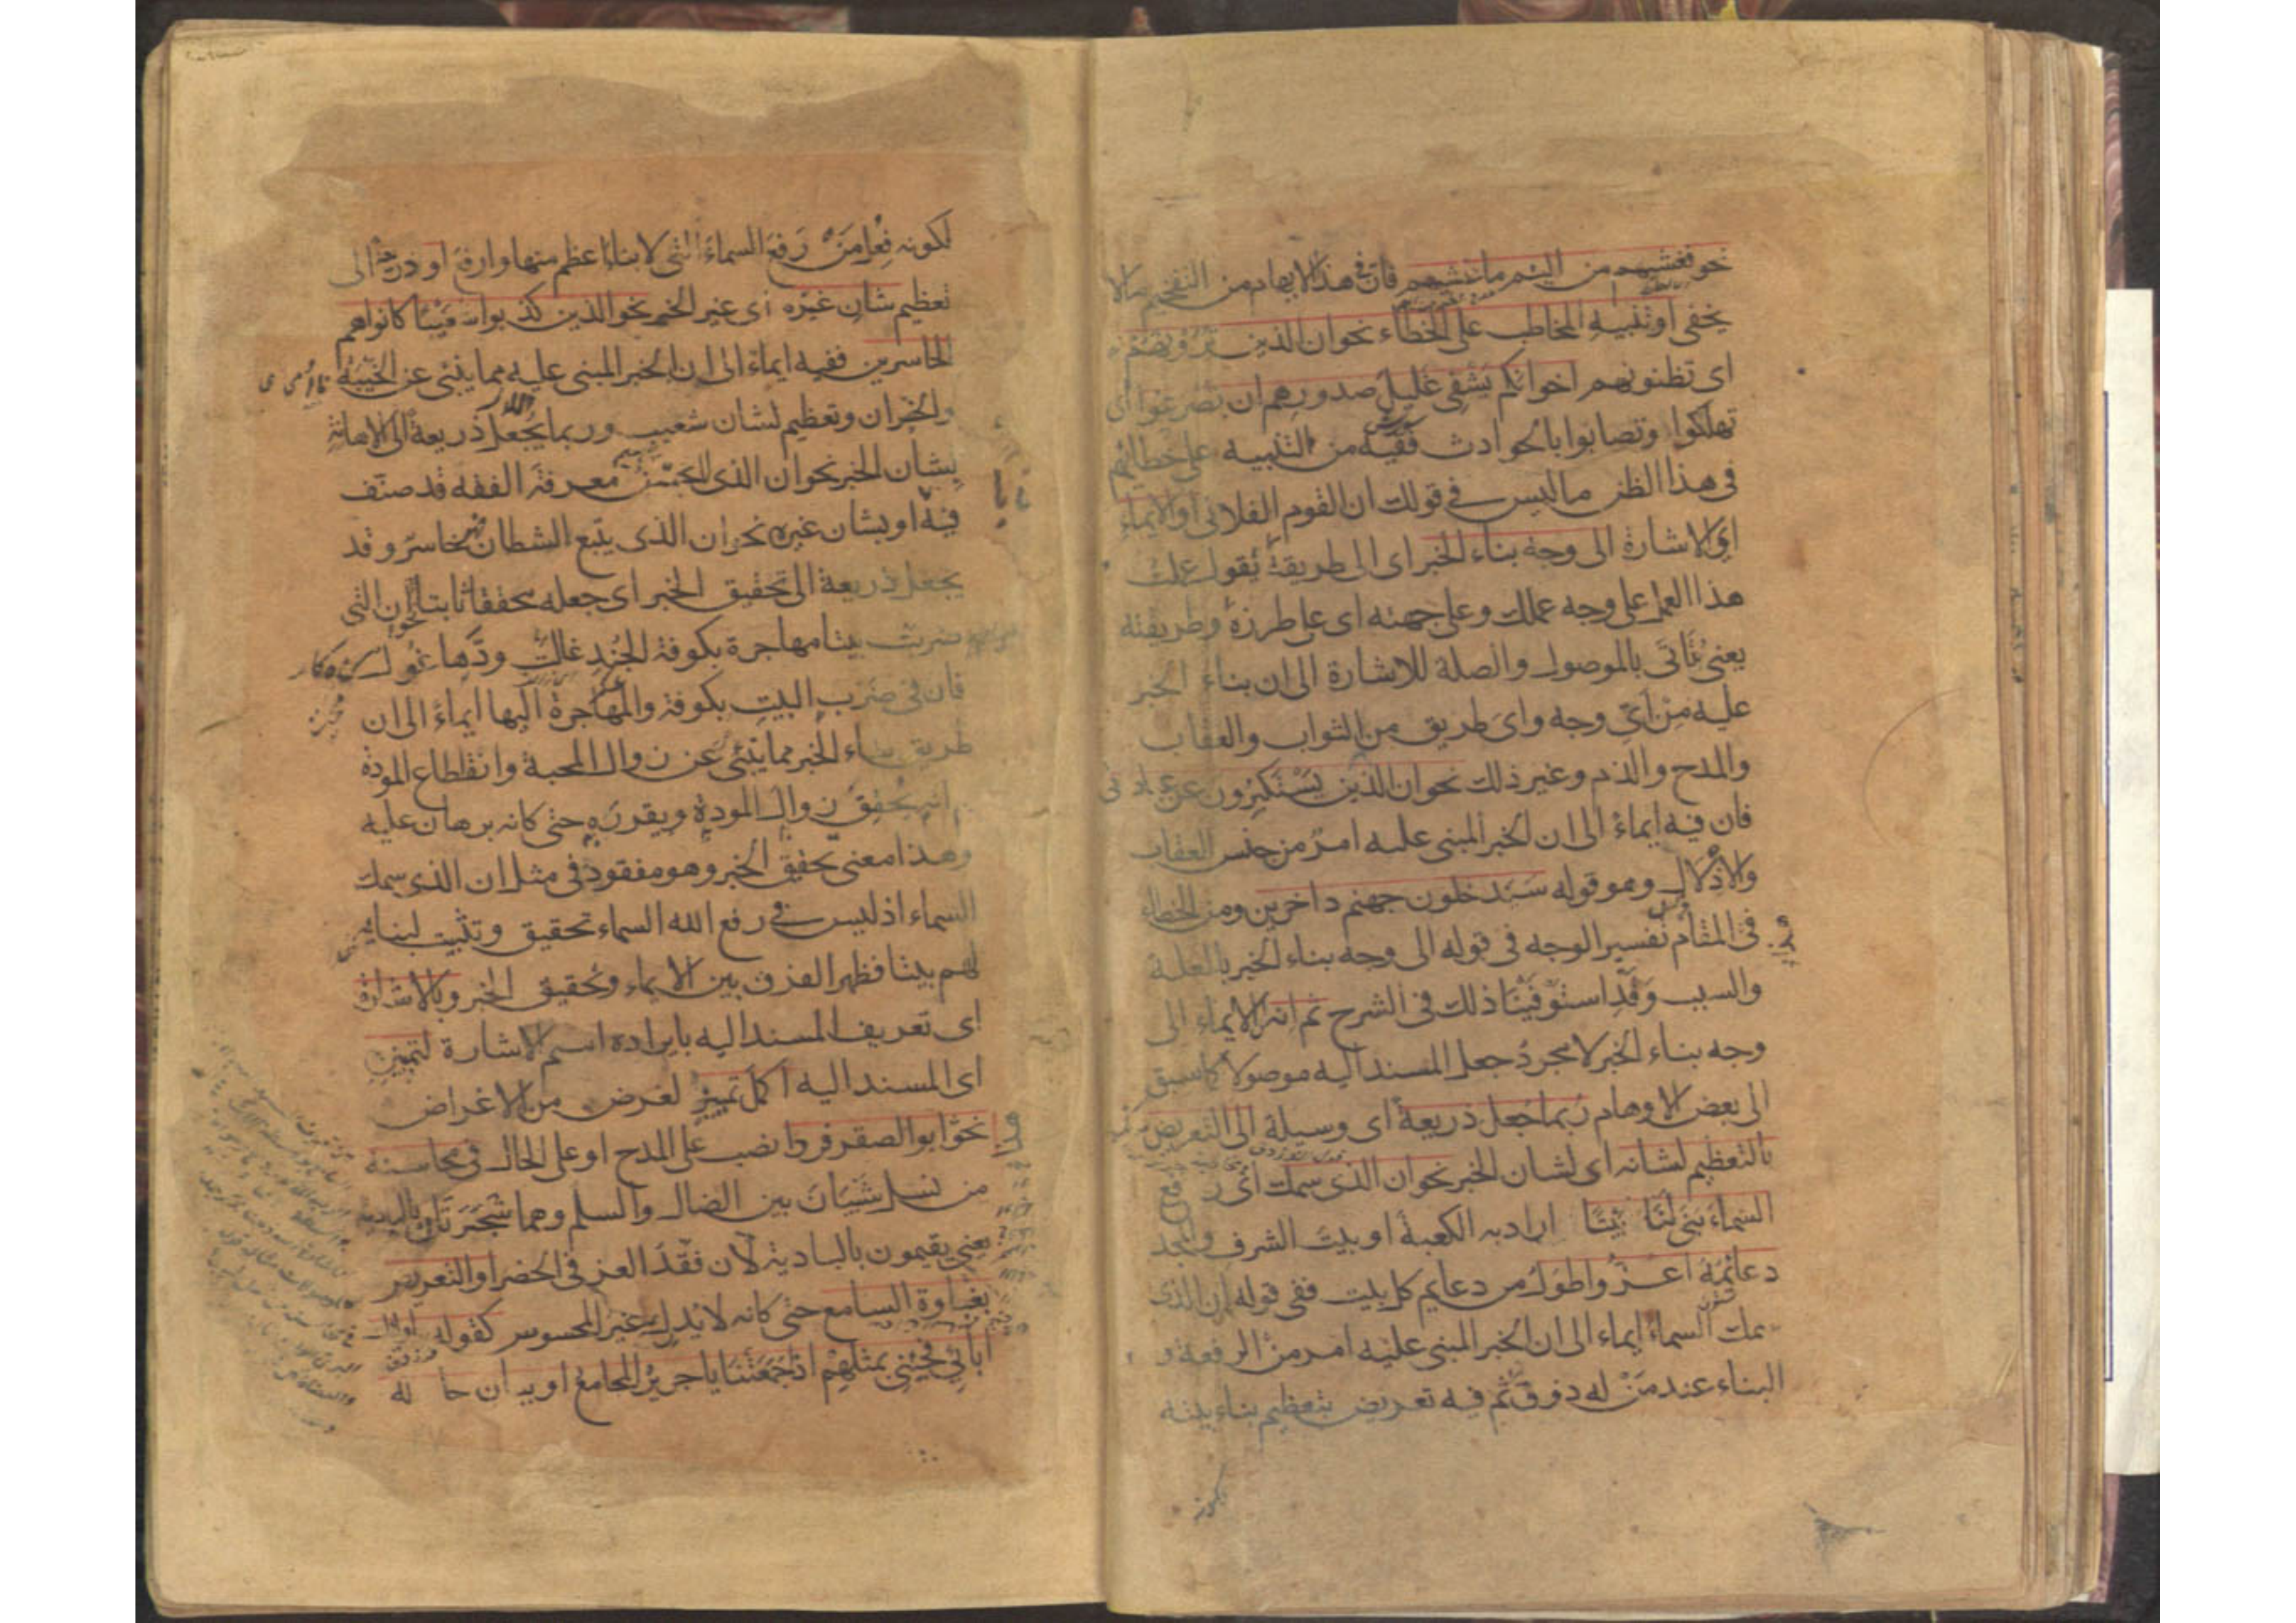 نحو فغشيهم من اليم ما غشيهم فان في هذا الابهام من التفخيم مالا
يخفى او تنبيه المخاطب على الخطاء نحو ان الذين ترونهم
اى تظنونهم اخوانكم يشفى غليل صدورهم ان تصرعوا اى
تهلكوا وتصابوا بالحوادث ففيه من التنبيه على خطائهم
فى هذا الظن ماليس فى قولك ان القوم الفلانى او الايماء
اى الاشارة الى وجه بناء الخبر اى الى طريقة تقول عملت
هذا العمل على وجه عملك وعلى جهته اى على طرزه وطريقته
يعنى تأتى بالموصول والصلة للاشارة الى ان بناء الخبر
عليه من اى وجه واى طريق من الثواب والعقاب
والمدح والذم وغير ذلك نحو ان الذين يستكبرون عن عبادتى
فان فيه ايماء الى ان الخبر المبنى عليه امر من جنس العقاب
والاذلال وهو قوله سيدخلون جهنم داخرين ومن الخطاء
فى المقام تفسير الوجه فى قوله الى وجه بناء الخبر بالعلة
والسبب وقد استوفينا ذلك فى الشرح ثم انه الايماء الى
وجه بناء الخبر لا مجرد جعل المسند اليه موصولا كما سبق
الى بعض الاوهام ربما جعل ذريعة اى وسيلة الى التعريض
بالتعظيم لشانه اى لشان الخبر نحو ان الذى سمك اى رفع
السماء بنى لنا بيتا اراد به الكعبة او بيت الشرف والمجد
دعائمه اعز واطول من دعايم كل بيت ففى قوله ان الذى
سمك السماء ايماء الى ان الخبر المبنى عليه امر من الرفعة و
البناء عند من له ذوق ثم فيه تعريض بتعظيم بناء بيته
لكونه
لكونه فعل من رفع السماء التى لا بناء اعظم منها وارفع او ذريعة الى
تعظيم شان غيره اى غير الخبر نحو الذين كذبوا شعيبا كانوا هم
الخاسرين ففيه ايماء الى ان الخبر المبنى عليه مما ينبئ عن الخيبة
والخسران وتعظيم لشان شعيب وربما يجعل ذريعة الى الاهانة
بشان الخبر نحو ان الذى لا يحسن معرفة الفقه قد صنف
فيه او بشان غيره نحو ان الذى يتبع الشيطان فهو خاسر وقد
يجعل ذريعة الى تحقيق الخبر اى جعله محققا ثابتا نحو ان التى
ضربت بيتا مهاجرة بكوفة الجند غالت ودها غول
فان فى ضرب البيت بكوفة والمهاجرة اليها ايماء الى ان
طريق بناء الخبر مما ينبئ عن زوال المحبة وانقطاع المودة
ثم انه يحقق زوال المودة ويقرره حتى كانه برهان عليه
وهذا معنى تحقيق الخبر وهو مفقود فى مثل ان الذى سمك
السماء اذ ليس فى رفع الله السماء تحقيق وتثبيت لبنائه
لهم بيتا فظهر الفرق بين الايماء وتحقيق الخبر وبالاشارة
اى تعريف المسند اليه بايراده اسم الاشارة لتمييزه
اى المسند اليه اكمل تمييز لغرض من الاغراض
نحو هذا ابو الصقر فردا نصب على المدح او على الحال فى محاسنه
من نسل شيبان بين الضال والسلم وهما شجرتان بالبادية
يعنى يقيمون بالبادية لان فقد العز فى الحضر او التعريض
بغباوة السامع حتى كانه لا يدرك غير المحسوس كقوله اولئك
آبائى فجئنى بمثلهم اذا جمعتنا يا جرير المجامع او بيان حاله